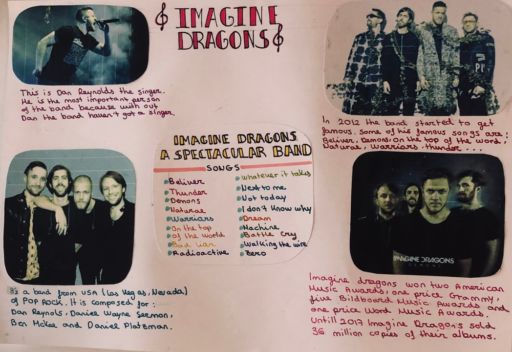 IMAGINE
DRAGONS
This is Dan Reynolds the singer.
He is the most important person
of the band because with out
Dan the band haven't got a singer.
In 2012 the band started to get
famous. some of his famous songs are:
Beliver, Demons, on the top of the word,
Naturae, Warriors, thunder...
IMAGINE DRAGONS
A SPECTACULAR BAND
SONGS
Beliver
Thunder
Demons
Naturae
Warriors
On the top
of the world
Bad liar
Radioactive
whatever it takes
Next to me
Not today
I don't know why
Dream
Machine
Battle cry
Walking the wire
Zero
IMAGINE DRAGONS
It's a band from USA (Las Vegas, Nevada)
of POP ROCK. It is composed for:
Dan Reynols, Daniel Wayne Sermon,
Ben McKee and Daniel Platzman.
Imagine dragons won two American
Music Awards, one price Grammy,
five Bildboard Music Awards and
one price Word Music Awards.
Untill 2017 Imagine Dragons sold
36 million copies of their albums.